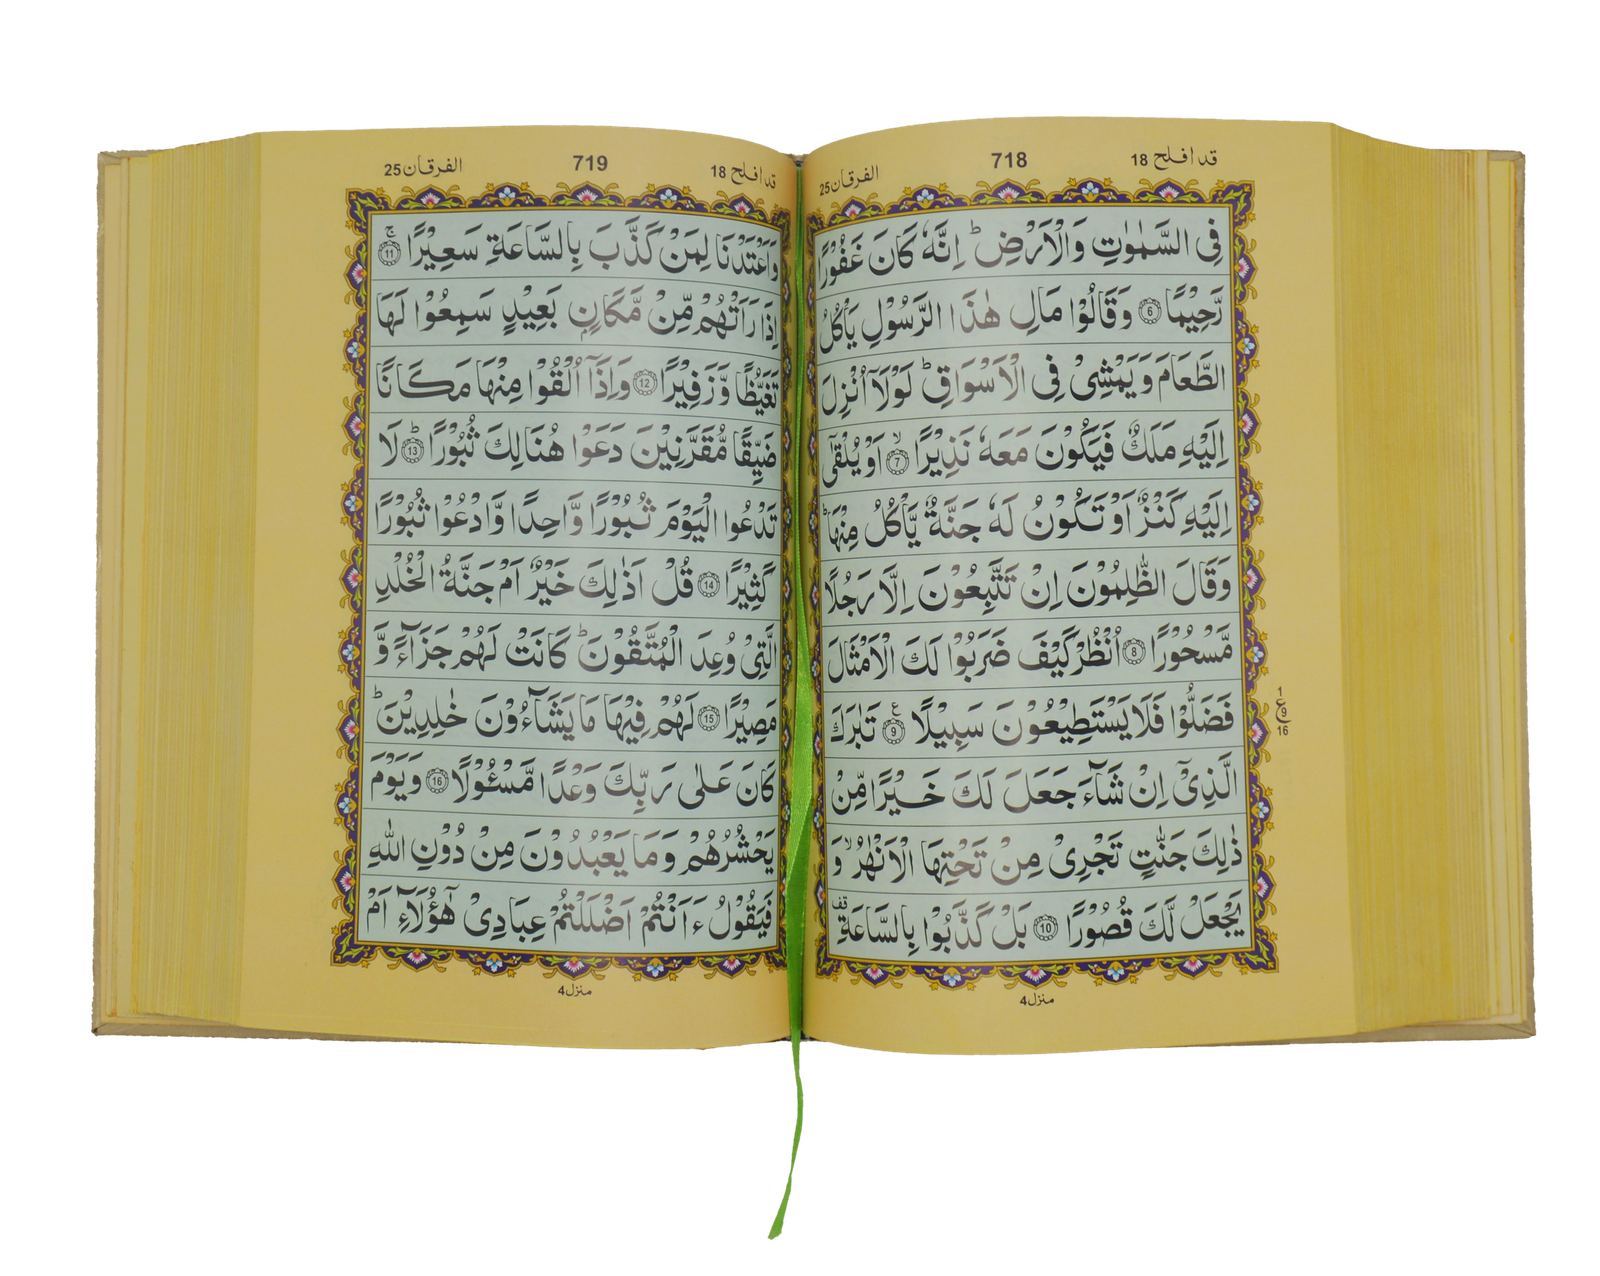 قد افلح 18
718
الفرقان 25
فِی السَّمٰوٰتِ وَالْاَرْضِ ؕ اِنَّهٗ كَانَ غَفُوْرًا
رَّحِیْمًا ﴿6﴾ وَقَالُوْا مَالِ هٰذَا الرَّسُوْلِ یَاْكُلُ
الطَّعَامَ وَیَمْشِیْ فِی الْاَسْوَاقِ ؕ لَوْلَاۤ اُنْزِلَ
اِلَیْهِ مَلَكٌ فَیَكُوْنَ مَعَهٗ نَذِیْرًا ۙ﴿7﴾ اَوْ یُلْقٰۤی
اِلَیْهِ كَنْزٌ اَوْ تَكُوْنُ لَهٗ جَنَّةٌ یَّاْكُلُ مِنْهَا ؕ
وَقَالَ الظّٰلِمُوْنَ اِنْ تَتَّبِعُوْنَ اِلَّا رَجُلًا
مَّسْحُوْرًا ﴿8﴾ اُنْظُرْ كَیْفَ ضَرَبُوْا لَكَ الْاَمْثَالَ
فَضَلُّوْا فَلَا یَسْتَطِیْعُوْنَ سَبِیْلًا ﴿9﴾ ع تَبٰرَكَ
1
ع
9
16
الَّذِیْۤ اِنْ شَآءَ جَعَلَ لَكَ خَیْرًا مِّنْ
ذٰلِكَ جَنّٰتٍ تَجْرِیْ مِنْ تَحْتِهَا الْاَنْهٰرُ ۙ وَ
یَجْعَلْ لَّكَ قُصُوْرًا ﴿10﴾ بَلْ كَذَّبُوْا بِالسَّاعَةِ قف
منزل 4
قد افلح 18
719
الفرقان 25
وَاَعْتَدْنَا لِمَنْ كَذَّبَ بِالسَّاعَةِ سَعِیْرًا ۚ﴿11﴾
اِذَا رَاَتْهُمْ مِّنْ مَّكَانٍۭ بَعِیْدٍ سَمِعُوْا لَهَا
تَغَیُّظًا وَّزَفِیْرًا ﴿12﴾ وَاِذَاۤ اُلْقُوْا مِنْهَا مَكَانًا
ضَیِّقًا مُّقَرَّنِیْنَ دَعَوْا هُنَالِكَ ثُبُوْرًا ؕ﴿13﴾ لَا
تَدْعُوا الْیَوْمَ ثُبُوْرًا وَّاحِدًا وَّادْعُوْا ثُبُوْرًا
كَثِیْرًا ﴿14﴾ قُلْ اَذٰلِكَ خَیْرٌ اَمْ جَنَّةُ الْخُلْدِ
الَّتِیْ وُعِدَ الْمُتَّقُوْنَ ؕ كَانَتْ لَهُمْ جَزَآءً وَّ
مَصِیْرًا ﴿15﴾ لَهُمْ فِیْهَا مَا یَشَآءُوْنَ خٰلِدِیْنَ ؕ
كَانَ عَلٰی رَبِّكَ وَعْدًا مَّسْـُٔوْلًا ﴿16﴾ وَیَوْمَ
یَحْشُرُهُمْ وَمَا یَعْبُدُوْنَ مِنْ دُوْنِ اللّٰهِ
فَیَقُوْلُ ءَاَنْتُمْ اَضْلَلْتُمْ عِبَادِیْ هٰۤؤُلَآءِ اَمْ
منزل 4